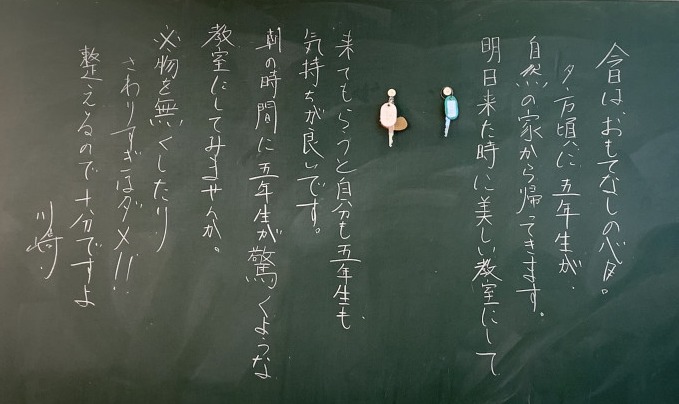 今日はおもてなしの心、夕。
夕方頃に五年生が、
自然の家から帰ってきます。
明日来た時に美しい教室にして
来てもらうと自分も五年生も
気持ちが良いです。
朝の時間に五年生が驚くような
教室にしてみませんか。
※物を無くしたり
さわりすぎはダメ!!
整えるので十分ですよ
川崎